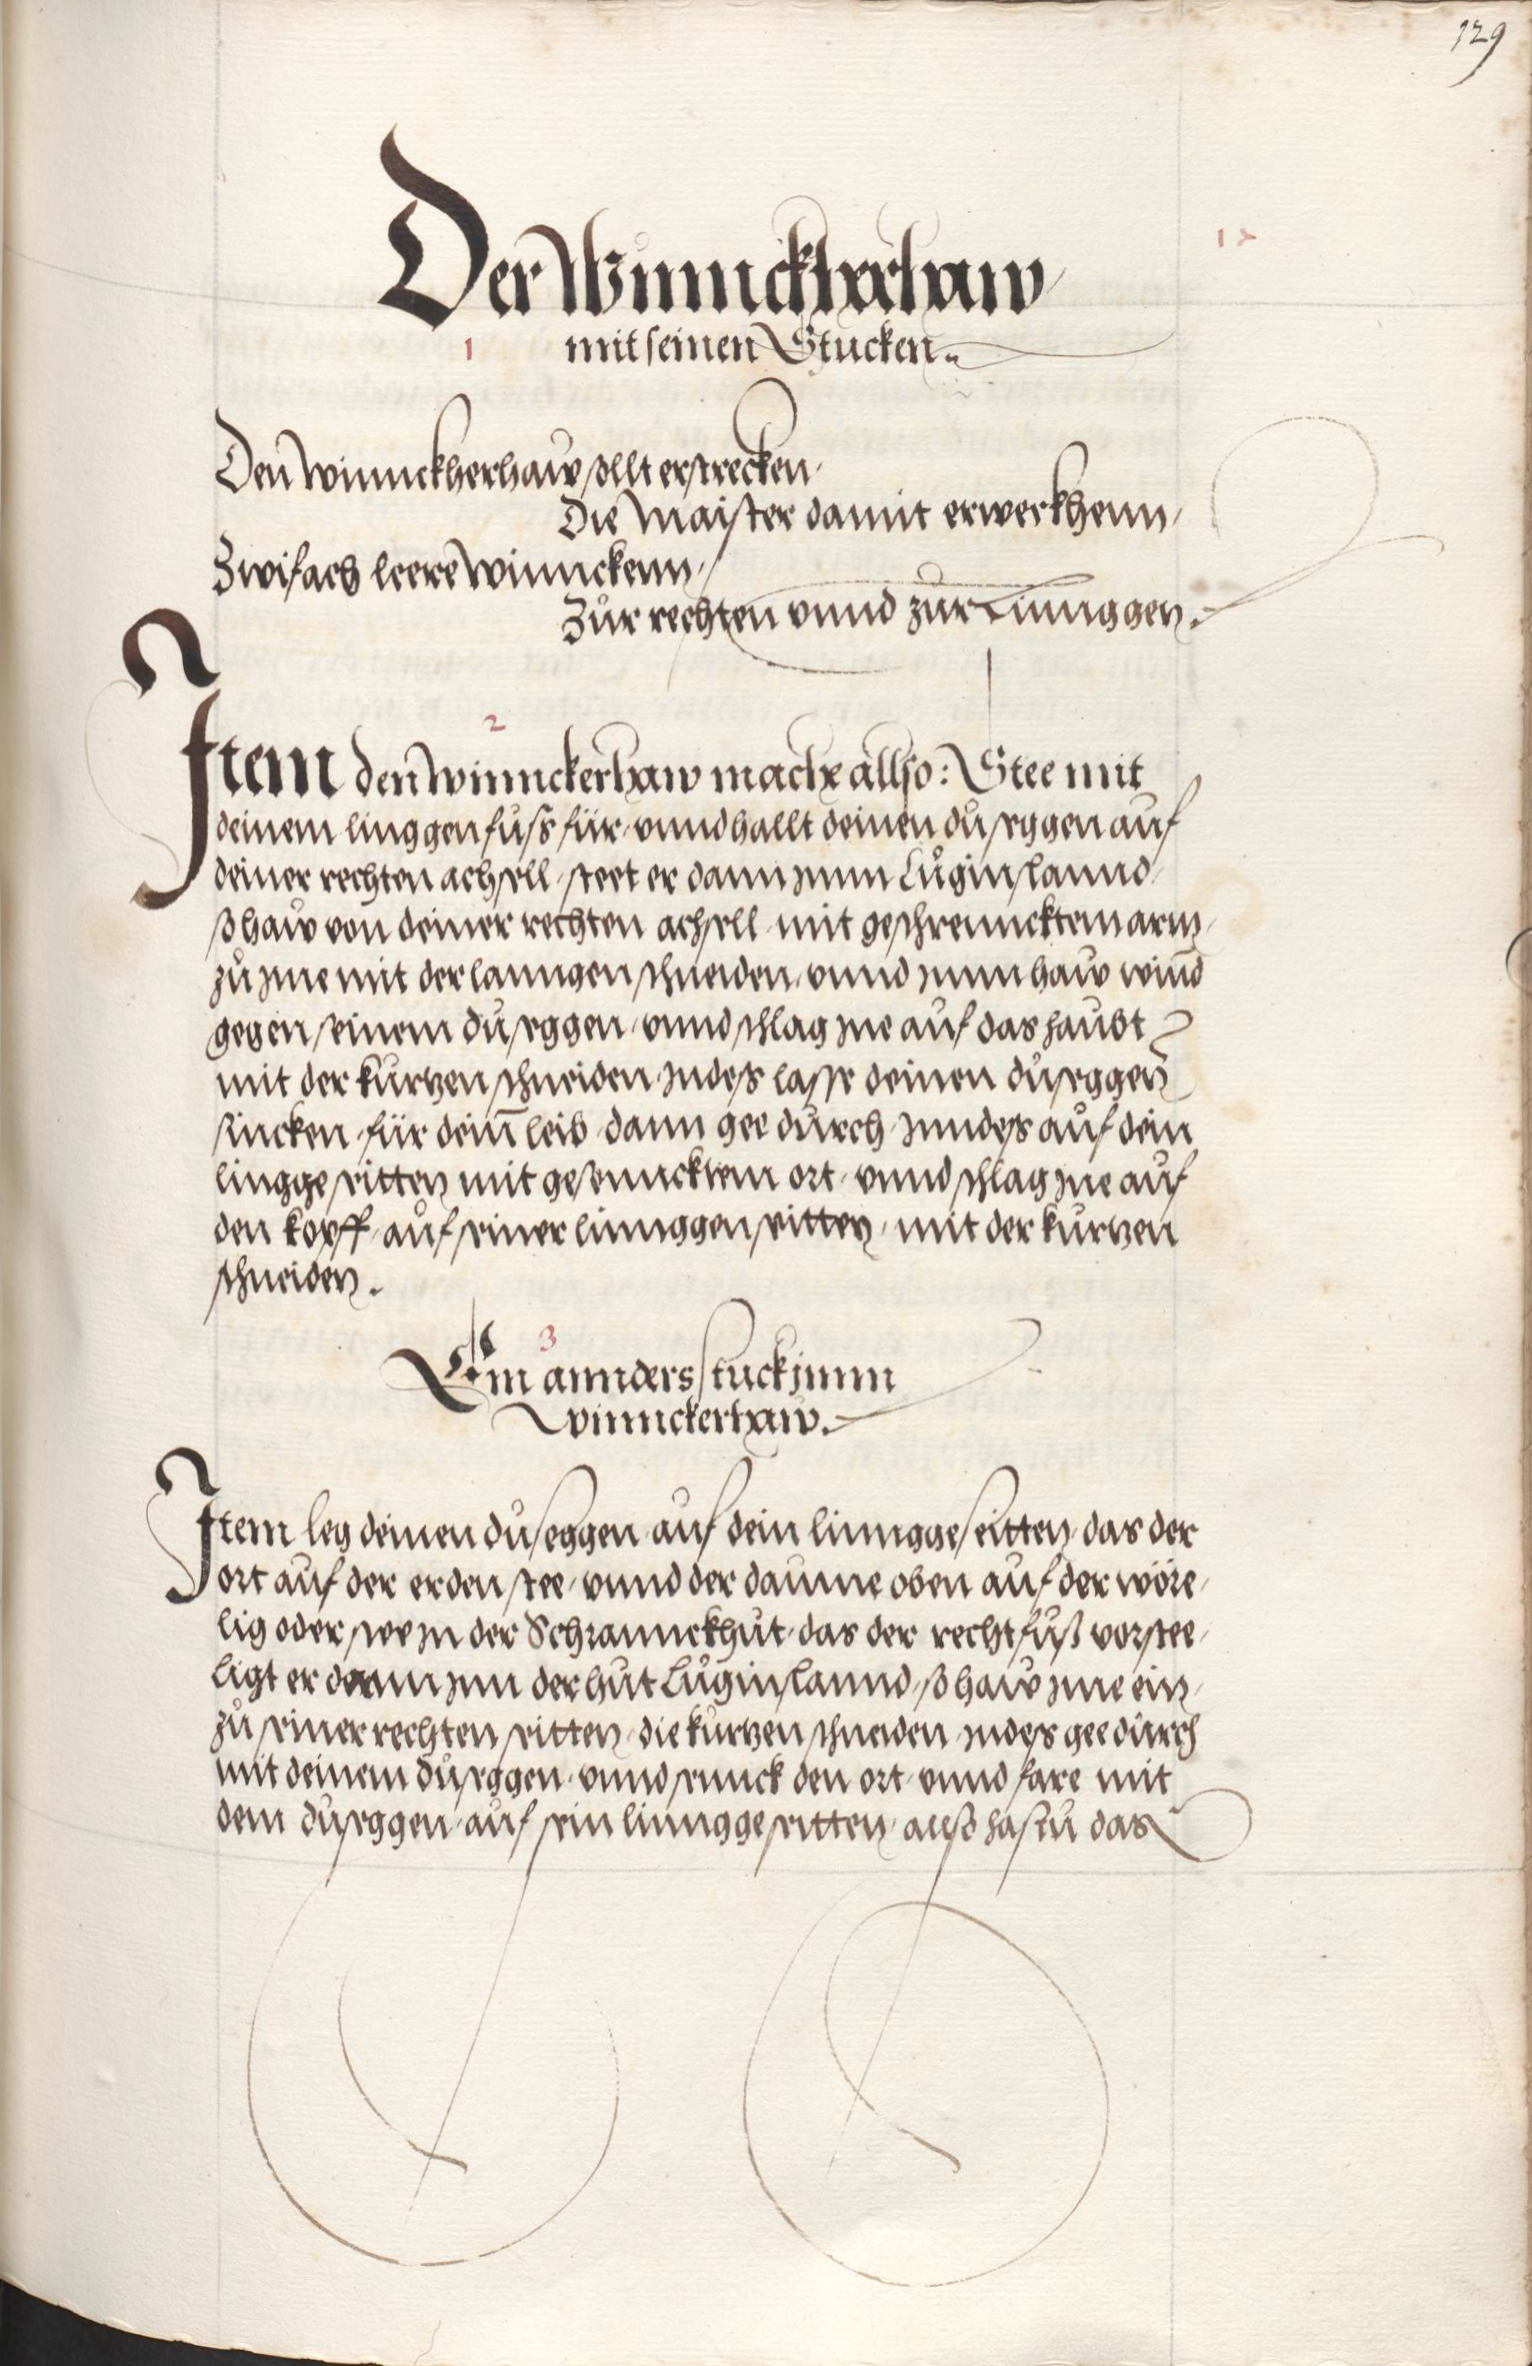 129
Der Winnckherhaw
12
1 mit seinen Stucken.
Den Winnckherhaw sollt erstrecken,
Die Maister damit erweckhenn,
Zwifach leere Winnckenn,
Zůr rechten vnnd zur Linnggen.
2
Item den Winnckerhaw mache allso: Stee mit
deinem linggen fuß für, vnnd hallt deinen dusěggen auf
deiner rechten achsell, steet er dann jnnn Lůginslannd,
so haw von deiner rechten achsell mit geschrennckhtem arm,
zů jme mit der lanngen schneiden, vnnd jnnn haw winnd
gegen seinem duseggen, vnnd schlag jne auf das haubt
mit der kurtzen schneiden, jndes lasse deinen duseggen
sincken, für dein̄ leib, dann gee durch, jnndes auf dein
lingge seitten mit gesennckhtem ort, vnnd schlag jne auf
den kopff, auf seiner linnggen seitten, mit der kurtzen
schneiden.
3
Ein annders stuck jnnn
winnckerhaw.
Item leg deinen duseggen auf dein linngge seitten, das der
ort auf der erden stee, vnnd der daume oben auf der wöre,
lig oder stee jn der Schranckhut, das der recht fuß vorstee,
ligt er dann jnn der hut Lůginslannd, so haw jme ein,
zů seiner rechten seitten, die kurtzen schneiden, jndes gee durch
mit deinem duseggen, vnnd sennck den ort, vnnd fare mit
dem duseggen, auf sein linngge seitten, auß hastu das